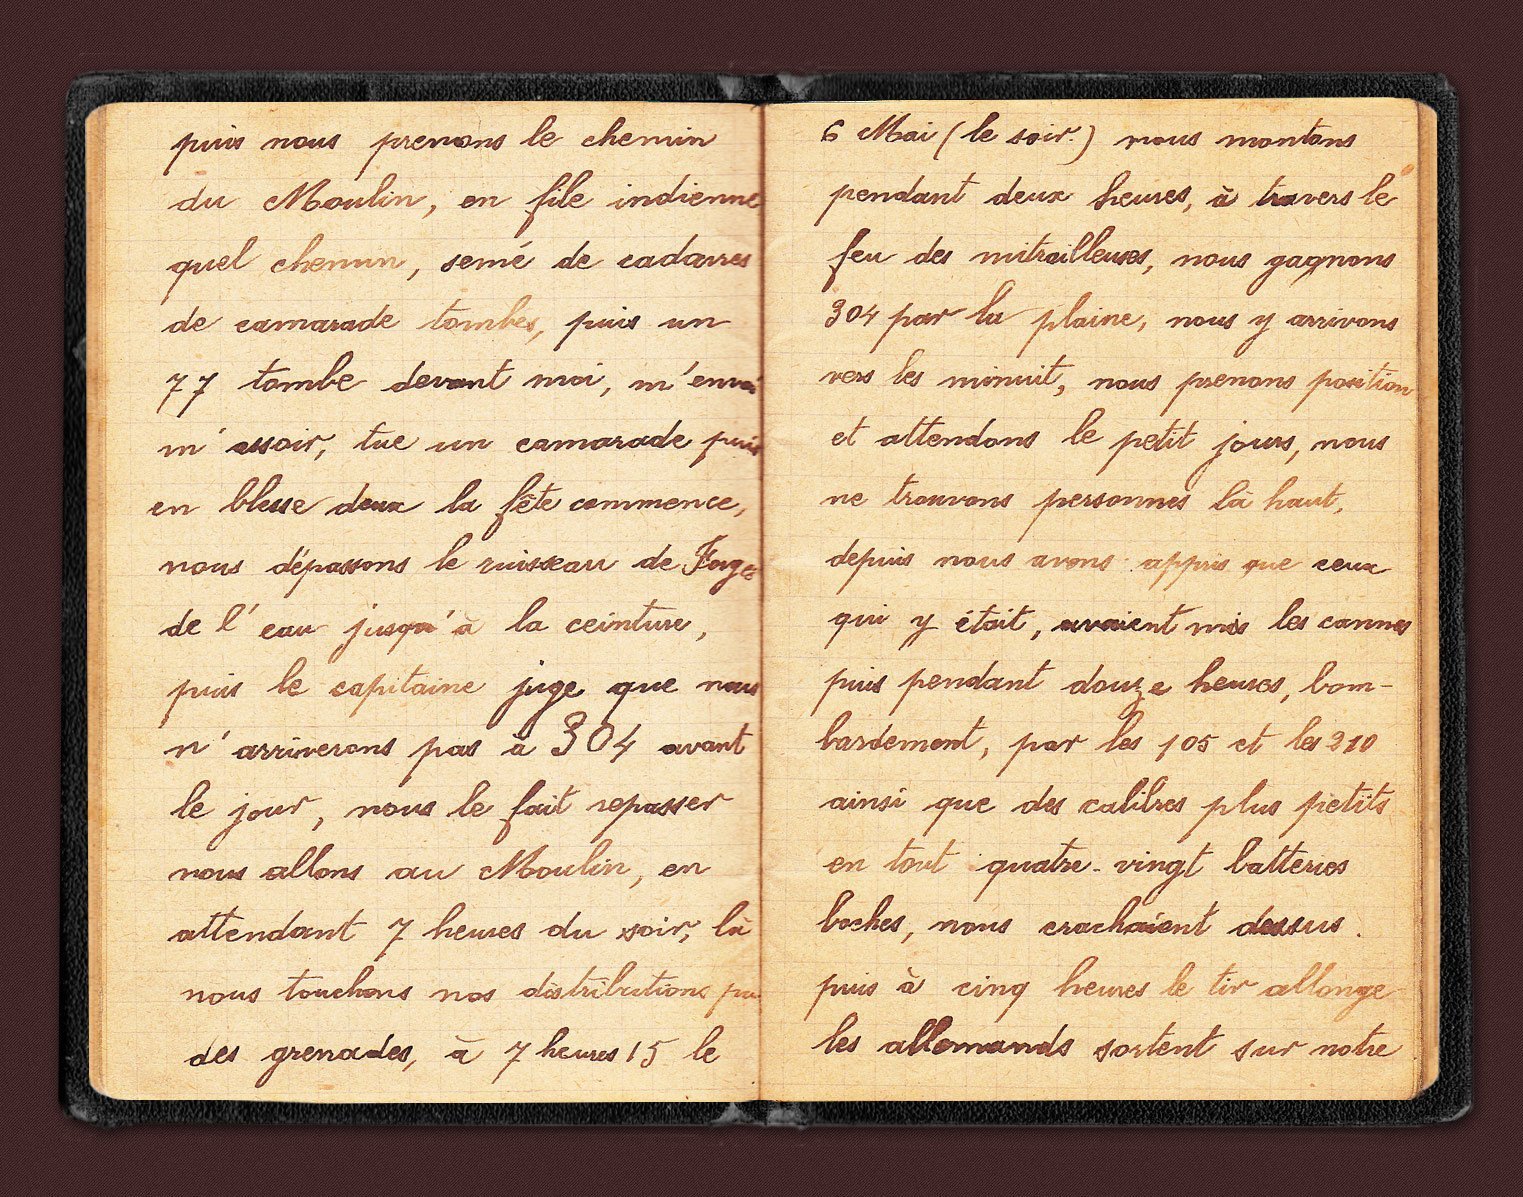 puis nous prenons le chemin
du Moulin, en file indienne
quel chemin, semé de cadavres
de camarade tombés, puis un
77 tombe devant moi, m'envoi
m'assoir, tue un camarade puis
en blesse deux la fête commence,
nous dépassons le ruisseau de Forges
de l'eau jusqu'à la ceinture,
puis le capitaine juge que nous
n'arriverons pas à 304 avant
le jour, nous le fait repasser
nous allons au Moulin, en
attendant 7 heures du soir, là
nous touchons nos distributions puis
des grenades, à 7 heures 15 le
6 Mai (le soir.) nous montons
pendant deux heures, à travers le
feu des mitrailleuses, nous gagnons
304 par la plaine, nous y arrivons
vers les minuit, nous prenons position
et attendons le petit jours, nous
ne trouvons personnes là haut,
depuis nous avons appris que ceux
qui y était, avaient mis les cannes
puis pendant douze heures, bom-
bardement, par les 105 et les 210
ainsi que des calibres plus petits
en tout quatre-vingt batteries
boches, nous crachaient dessus.
puis à cinq heures le tir allonge
les allemands sortent sur notre